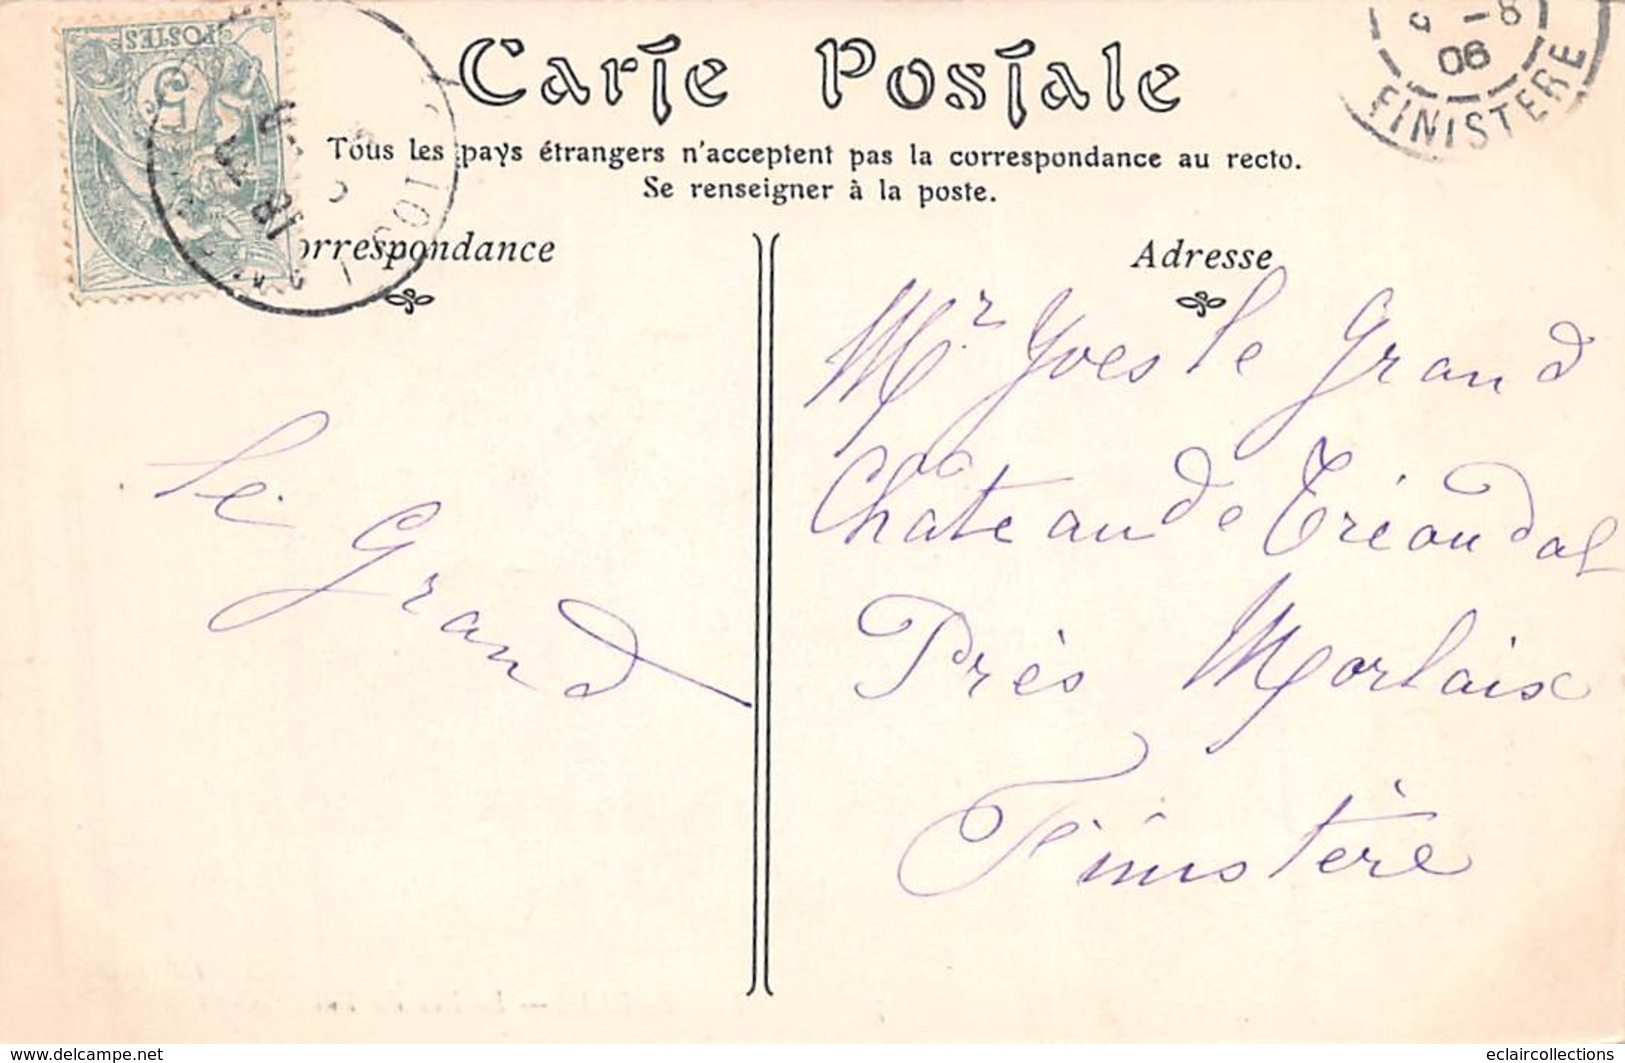 POSTES
5
8
06
FINISTERE
Carte Postale
Tous les pays étrangers n'acceptent pas la correspondance au recto.
Se renseigner à la poste.
orrespondance
Adresse
le Grand
Mr Yves le Grand
Chateau de Tréoudal
Près Morlaix
Finistère
www.delcampe.net
eclaircollections